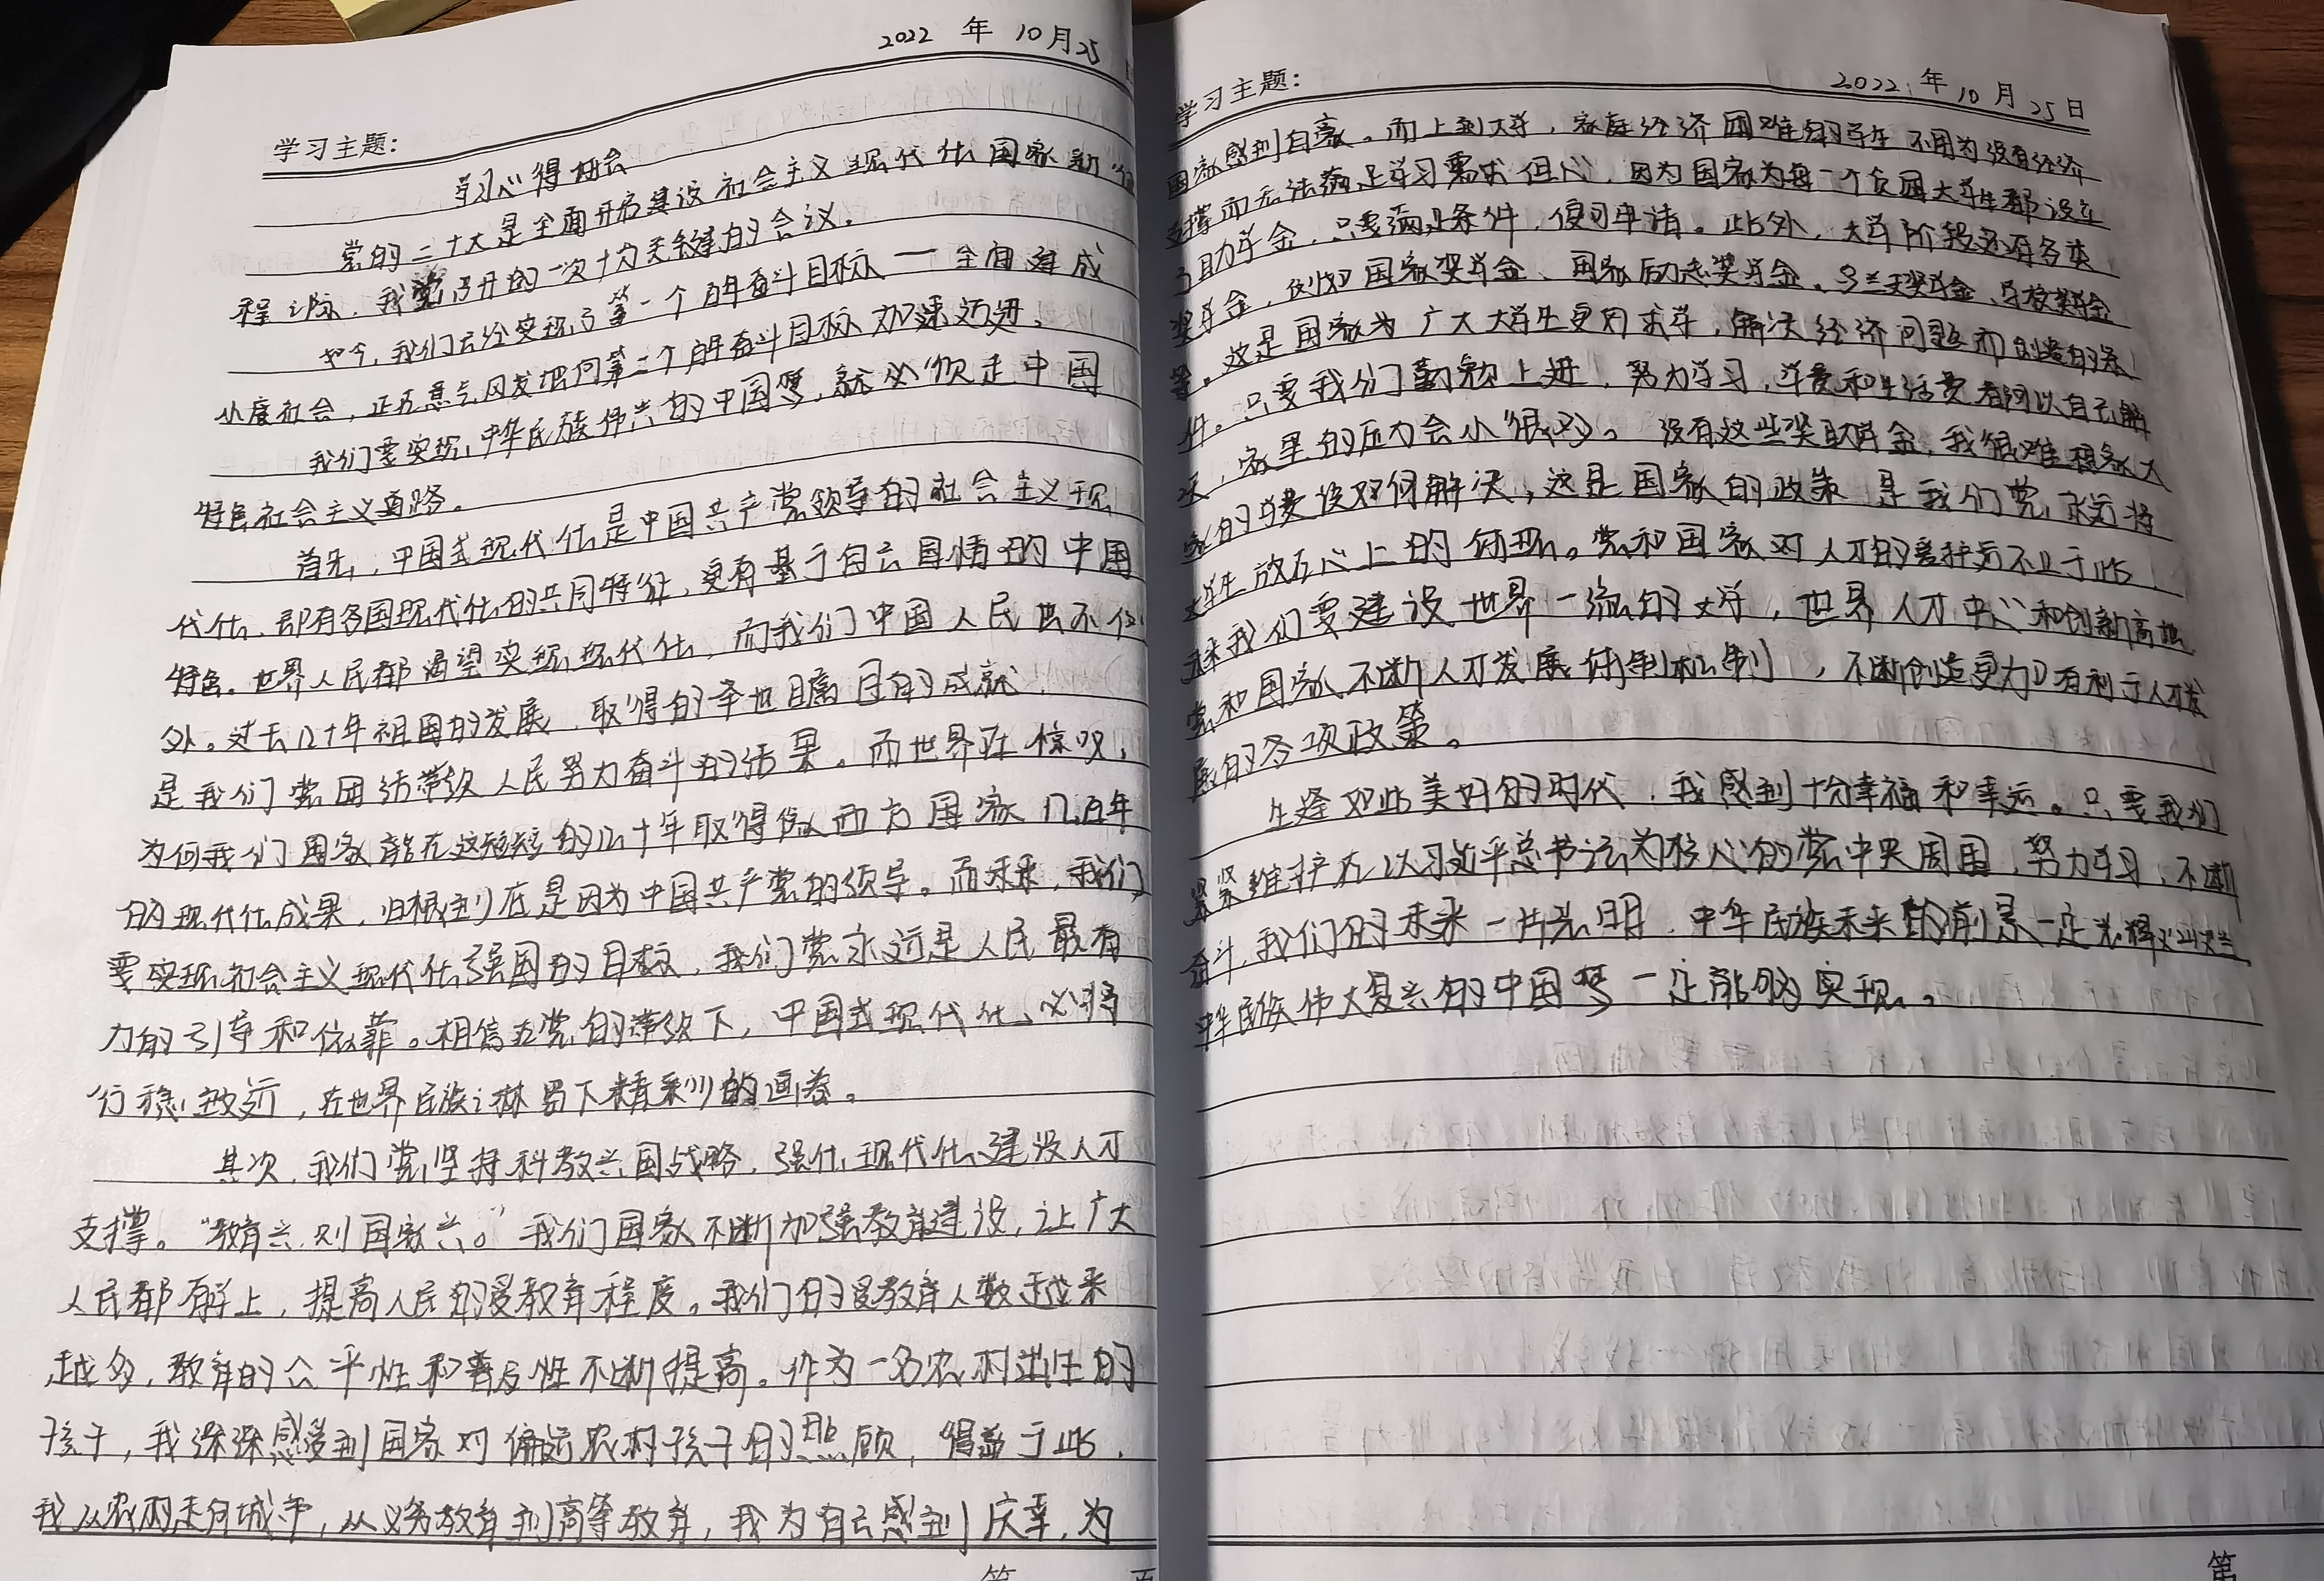 2022 年 10月25
学习主题:
学习心得体会
党的二十大是全面开启建设社会主义现代化国家新征
程之际,我党召开的一次十分关键的会议。
如今,我们已经实现了第一个百年奋斗目标一全面建成
小康社会,正在意气风发地向第二个百年奋斗目标加速迈进。
我们要实现中华民族伟兴的中国梦,就必须走中国
特色社会主义道路。
首先,中国式现代化是中国共产党领导的社会主义现
代化,即有各国现代化的共同特征,更有基于自己国情的中国
特色。世界人民都渴望实现现代化,而我们中国人民也不例
外。过去几十年祖国的发展,取得的举世瞩目的成就,
是我们党团结带领人民努力奋斗的结果。而世界在惊叹,
为何我们国家能在这短短的几十年取得像西方国家几百年
的现代化成果,归根到底是因为中国共产党的领导。而未来,我们
要实现社会主义现代化强国的目标,我们党永远是人民最有
力的引导和依靠。相信在党的带领下,中国式现代化必将
行稳致远,在世界民族之林留下精彩的画卷。
其次,我们党坚持科教兴国战略,强化现代化建设人才
支撑。“教育兴则国家兴。”我们国家不断加强教育建设,让广大
人民都有学上,提高人民的受教育程度。我们的受教育人数越来
越多,教育的公平性和普及性不断提高。作为一名农村出生的
孩子,我深深感受到国家对偏远农村孩子的照顾,得益于此,
我从农村走向城市,从义务教育到高等教育,我为自己感到庆幸,为
第 页
学习主题: 2022 年 10 月 25 日
国家感到自豪。而上到大学,家庭经济困难的学生不用为没有经济
支撑而无法满足学习需求担心,因为国家为每一个贫困大学生都设立
了助学金,只要满足条件,便可申请。此外,大学阶段还有各类
奖学金,例如国家奖学金、国家励志奖学金、乌兰夫奖学金、学校奖学金
等。这是国家为广大大学生更好求学,解决经济问题而创造的条
件。只要我们勤勉上进,努力学习,学费和生活费都可以自己解
决,家里的压力会小很多。没有这些奖助学金,我很难想象大
家的学费该如何解决,这是国家的政策,是我们党永远将
大学生放在心上的体现。党和国家对人才的爱护远不止于此,
未来我们要建设世界一流的大学,世界人才中心和创新高地
党和国家不断人才发展体制机制,不断创造更加有利于人才发
展的各项政策。
生逢如此美好的时代,我感到十分幸福和幸运。只要我们
紧紧维护在以习近平总书记为核心的党中央周围,努力学习,不断
奋斗,我们的未来一片光明,中华民族未来的前景一定光辉灿烂
中华民族伟大复兴的中国梦一定能够实现。
第